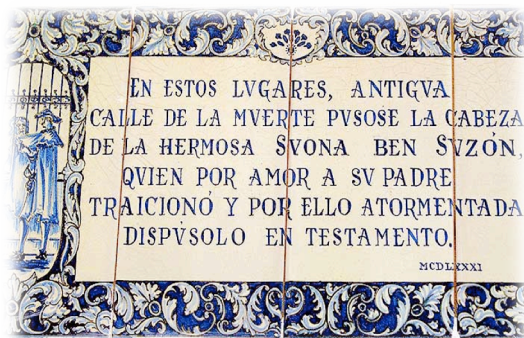 EN ESTOS LVGARES, ANTIGVA
CALLE DE LA MVERTE PVSOSE LA CABEZA
DE LA HERMOSA SVONA BEN SVZÓN,
QVIEN POR AMOR A SV PADRE
TRAICIONÓ Y POR ELLO ATORMENTADA
DISPV́SOLO EN TESTAMENTO.
MCDLXXXI